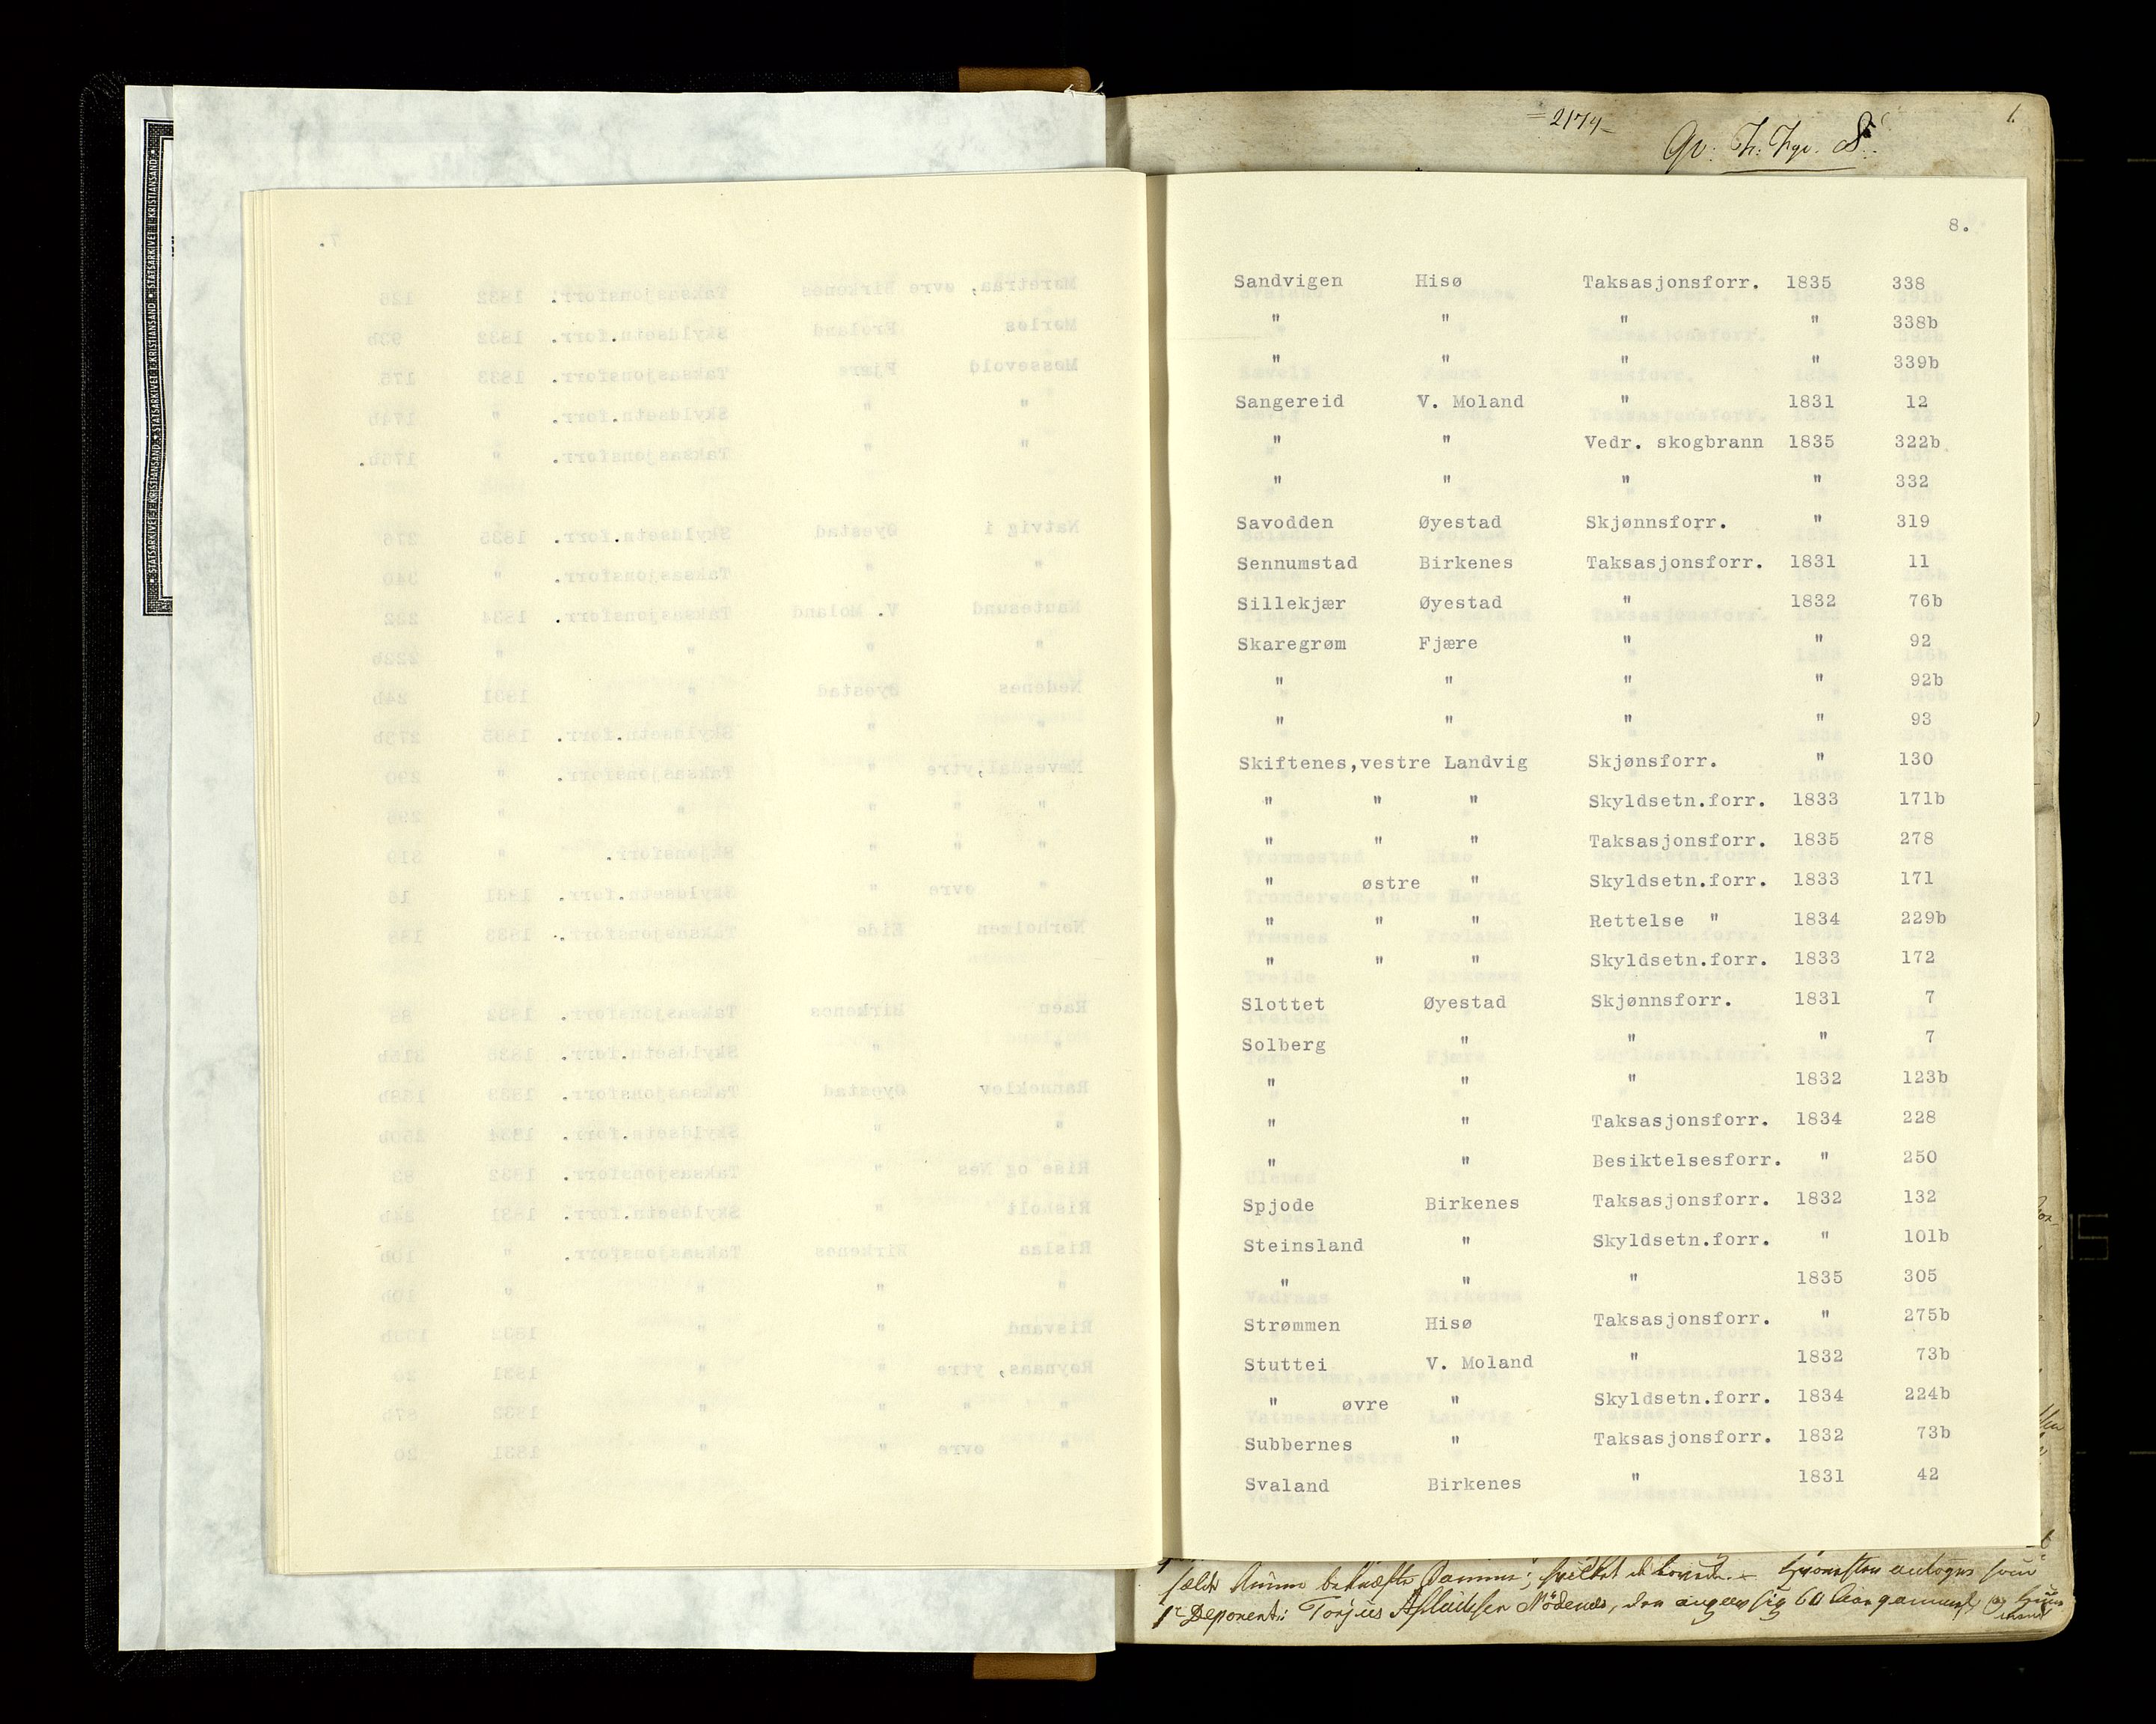 STATSARKIVET KRISTIANSAND
= 2174 -
1.
8.
Sandvigen Hisø Taksasjonsforr. 1835 338
" " " " 338b
" " " " 339b
Sangereid V. Moland " 1831 12
" " Vedr. skogbrann 1835 322b
" " " " 332
Savodden Øyestad Skjønnsforr. " 319
Sennumstad Birkenes Taksasjonsforr. 1831 11
Sillekjær Øyestad " 1832 76b
Skaregrøm Fjære " " 92
" " " " 92b
" " " " 93
Skiftenes,vestre Landvig Skjønsforr. " 130
" " " Skyldsetn.forr. 1833 171b
" " " Taksasjonsforr. 1835 278
" østre " Skyldsetn.forr. 1833 171
" " " Rettelse " 1834 229b
" " " Skyldsetn.forr. 1833 172
Slottet Øyestad Skjønnsforr. 1831 7
Solberg " " " 7
" " " 1832 123b
" " Taksasjonsforr. 1834 228
" " Besiktelsesforr. " 250
Spjode Birkenes Taksasjonsforr. 1832 132
Steinsland " Skyldsetn.forr. " 101b
" " " 1835 305
Strømmen Hisø Taksasjonsforr. " 275b
Stuttei V. Moland " 1832 73b
" øvre " Skyldsetn.forr. 1834 224b
Subbernes " Taksasjonsforr. 1832 73b
Svaland Birkenes " 1831 42
1r Deponent: Torjus Aslaksen Nödenes, den angeev sig 60 Aar gammel,